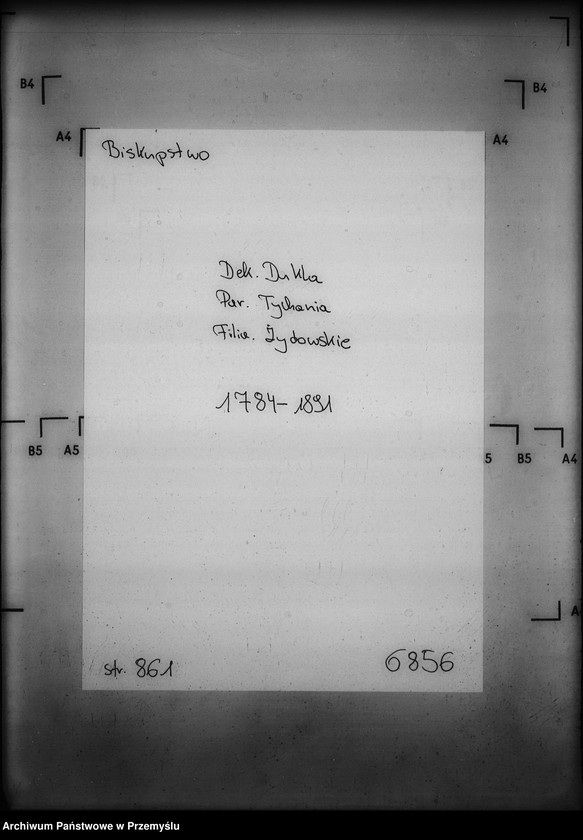 B4
B4
A4
A4
Biskupstwo
Dek. Dukla
Par. Tychania
Filia. Żydowskie
1784-1891
B5
A5
5
B5
A4
A
str. 861
6856
Archiwum Państwowe w Przemyślu